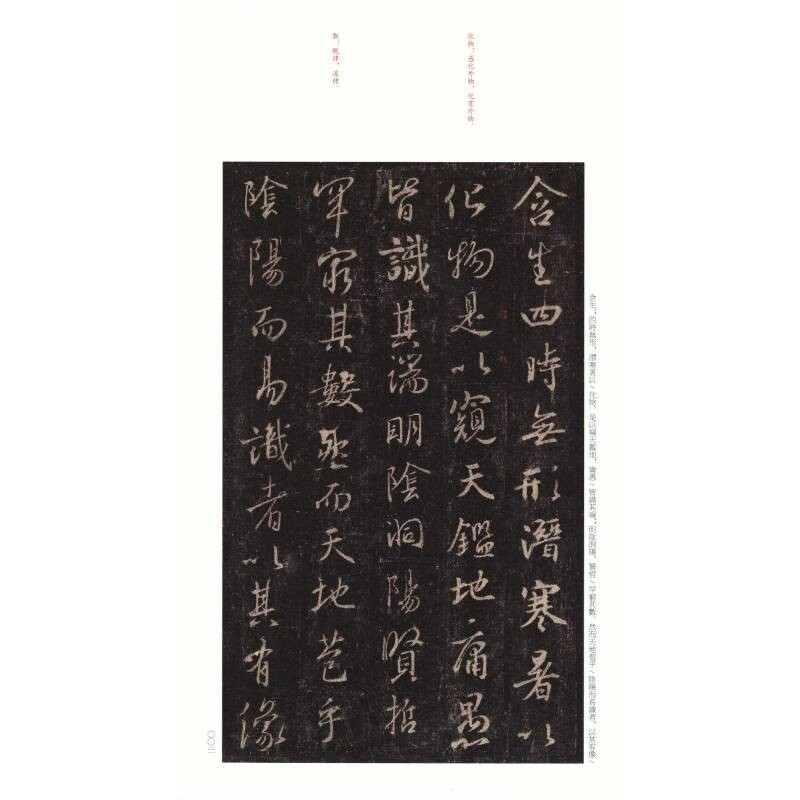 化物：感化外物，化育外物。
數：規律，道理。
含生四時無形潛寒暑以
化物是以窺天鑑地庸愚
皆識其端明陰洞陽賢哲
罕窮其數然而天地苞乎
陰陽而易識者以其有像
含生；四時無形，潛寒暑以/化物。是以窺天鑑地，庸愚/皆識其端；明陰洞陽，賢哲/罕窮其數。然而天地苞乎/陰陽而易識者，以其有像/